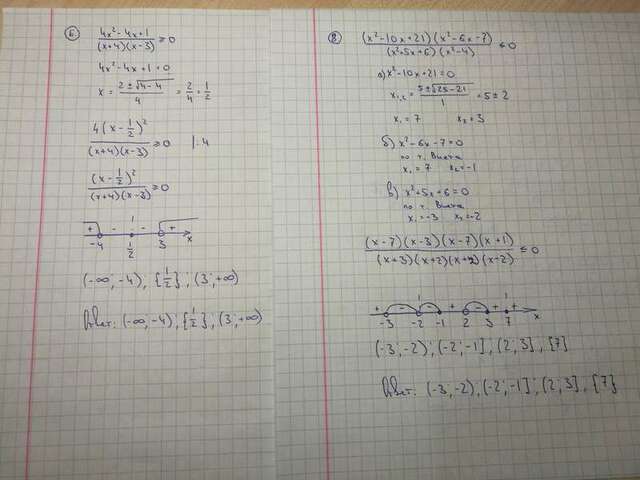 6) (4x² - 4x + 1)/((x+4)(x-3)) ≥ 0
4x² - 4x + 1 = 0
x = (2 ± √(4-4))/4 = 2/4 = 1/2
4(x - 1/2)²/((x+4)(x-3)) ≥ 0 | : 4
(x - 1/2)²/((x+4)(x-3)) ≥ 0
+ - - +
-4 1/2 3 x
(-∞; -4), {1/2}; (3; +∞)
Ответ: (-∞; -4); {1/2}; (3; +∞)
8) (x² - 10x + 21)(x² - 6x - 7)/((x² + 5x + 6)(x² - 4)) ≤ 0
а) x² - 10x + 21 = 0
x₁,₂ = (5 ± √(25-21))/1 = 5 ± 2
x₁ = 7 x₂ = 3
б) x² - 6x - 7 = 0
по т. Виета
x₁ = 7 x₂ = -1
в) x² + 5x + 6 = 0
по т. Виета
x₁ = -3 x₂ = -2
(x-7)(x-3)(x-7)(x+1)/((x+3)(x+2)(x+2)(x-2)) ≤ 0
+ - - + - + +
-3 -2 -1 2 3 7 x
(-3; -2); (-2; -1]; (2; 3], {7}
Ответ: (-3; -2), (-2; -1]; (2; 3], {7}